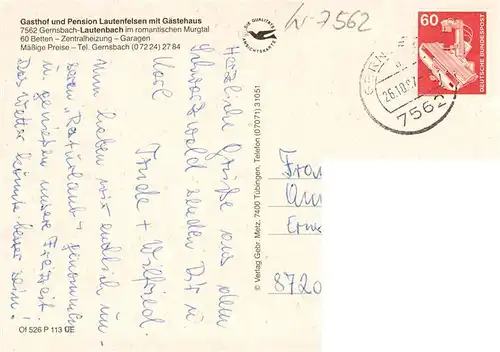 Gasthof und Pension Lautenfelsen mit Gästehaus
7562 Gernsbach-Lautenbach im romantischen Murgtal
60 Betten – Zentralheizung – Garagen
Mäßige Preise – Tel. Gernsbach (0 72 24) 27 84
7562
DIE QUALITÄTS
ANSICHTSKARTE
60
DEUTSCHE BUNDESPOST
GERN
26.10.87
7562
Herzliche Grüße aus dem
Schwarzwald senden Dir u.
Karl
Trude + Wilfried.
Nun haben wir endlich un-
seren „Resturlaub“ genommen
u. genießen unsere Freizeit.
Das Wetter könnte besser sein!
© Verlag Gebr. Metz, 7400 Tübingen, Telefon (07071) 31051
8720
Of 526 P 113 UE